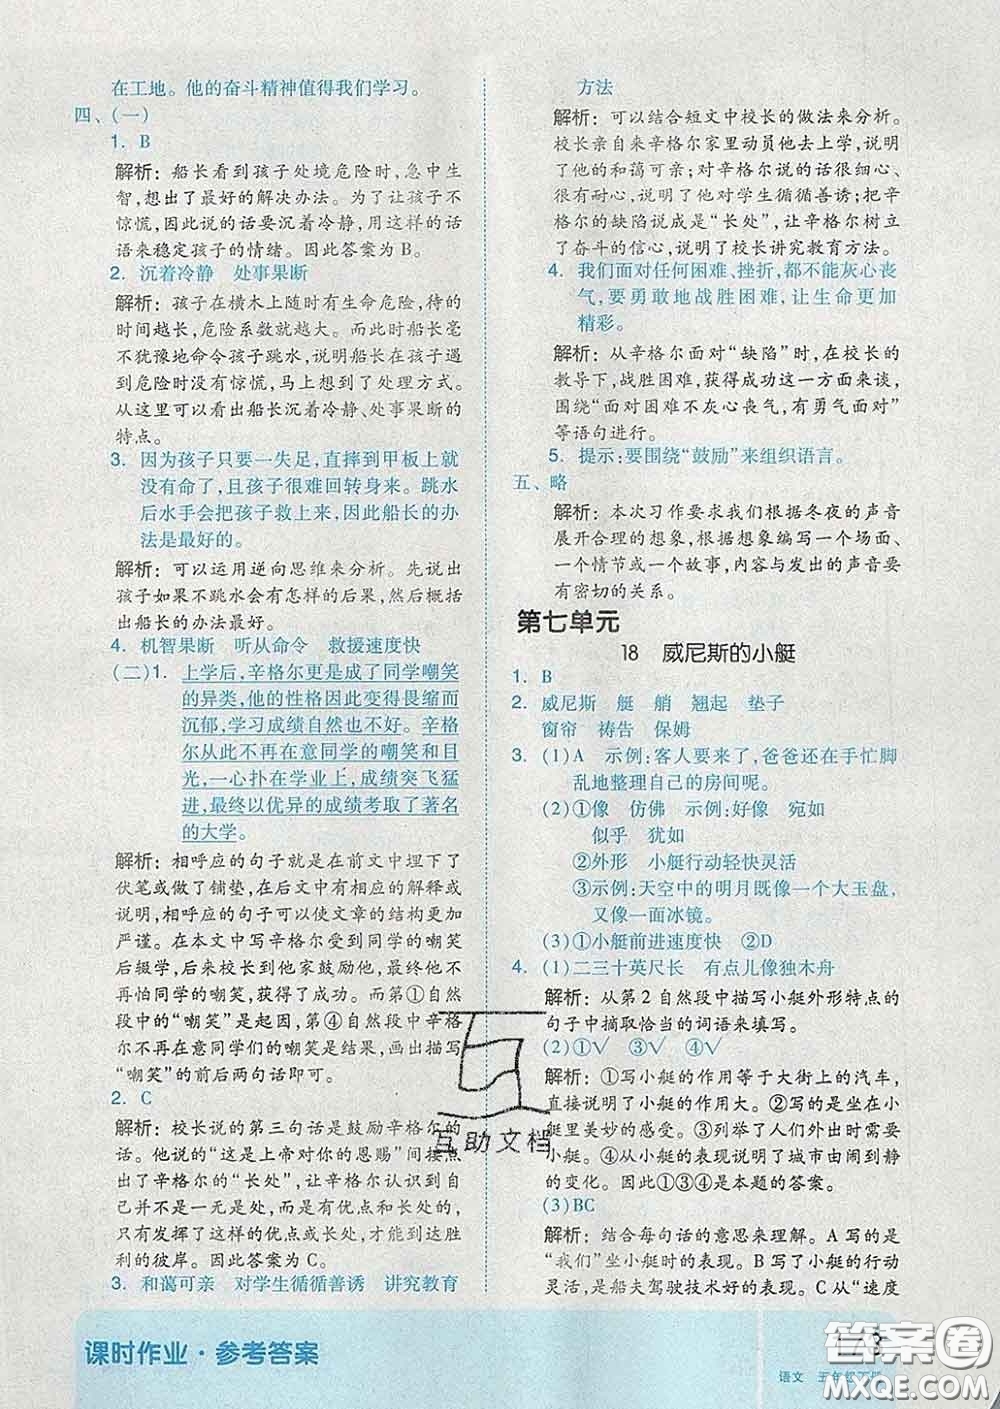 在工地。他的奋斗精神值得我们学习。
四、(一)
1. B
解析：船长看到孩子处境危险时，急中生
智，想出了最好的解决办法。为了让孩子不
惊慌，因此说的话要沉着冷静，用这样的话
语来稳定孩子的情绪。因此答案为 B。
2. 沉着冷静　处事果断
解析：孩子在横木上随时有生命危险，待的
时间越长，危险系数就越大。而此时船长毫
不犹豫地命令孩子跳水，说明船长在孩子遇
到危险时没有惊慌，马上想到了处理方式。
从这里可以看出船长沉着冷静、处事果断的
特点。
3. 因为孩子只要一失足，直摔到甲板上就
没有命了，且孩子很难回转身来。跳水
后水手会把孩子救上来，因此船长的办
法是最好的。
解析：可以运用逆向思维来分析。先说说
孩子如果不跳水会有怎样的后果，然后明确
船长的办法最好。
4. 机智果断　听从命令　救援速度快
(二)1. 上学后，辛格尔更是成了同学嘲笑
的异类，他的性格因此变得畏缩而
沉郁，学习成绩自然也不好。辛格
尔从此不再在意同学的嘲笑和目
光，一心扑在学业上，成绩突飞猛
进，最终以优异的成绩考取了著名
的大学。
解析：相呼应的句子就是在前文中埋下了
伏笔或做了铺垫，在后文中有相应的解释或
说明，相呼应的句子可以使文章的结构更加
严谨。在本文中写辛格尔受到同学的嘲笑
后辍学，后来校长到他家鼓励他，最后他不
再怕同学的嘲笑，获得了成功。而第①自然
段中的“嘲笑”是起因，第④自然段中辛格
尔不再在意同学们的嘲笑是结果，画出描写
“嘲笑”的前后两句话即可。
2. C
解析：校长说的第三句话是鼓励辛格尔的
话。他说的“这是上帝对你的恩赐”间接点
出了辛格尔的“长处”，让辛格尔认识到自
己并不是一无是处，而是有优点、有长处的，
只有发挥了这样的优点或长处，才能到达胜
利的彼岸。因此答案为 C。
3. 和蔼可亲　对学生循循善诱　讲究教育
方法
解析：可以结合短文中校长的做法来分析。
校长亲自来辛格尔家里动员他去上学，说明
了他的和蔼可亲；对辛格尔说的话很细心、
很有耐心，说明了他对学生循循善诱；把辛
格尔的缺陷说成是“长处”，让辛格尔树立
了奋斗的信心，说明了校长讲究教育方法。
4. 我们面对任何困难、挫折，都不能灰心丧
气，要勇敢地战胜困难，让生命更加
精彩。
解析：从辛格尔面对“缺陷”时，在校长的
教导下，战胜困难，获得成功这一方面来谈，
围绕“面对困难不灰心丧气，有勇气面对”
等语句进行。
5. 提示：要围绕“鼓励”来组织语言。
五、略
解析：本次习作要求我们根据冬夜的声音
展开合理的想象，根据想象编写一个场面、
一个情节或一个故事，内容与发出的声音要
有密切的关系。
第七单元
18　威尼斯的小艇
1. B
2. 威尼斯　艇　艄　翘起　垫子
窗帘　祷告　保姆
3. (1)A　示例：客人要来了，爸爸还在手忙脚
乱地整理自己的房间呢。
(2)①像　仿佛　示例：好像　宛如
似乎　犹如
②外形　小艇行动轻快灵活
③示例：天空中的明月既像一个大玉盘，
又像一面冰镜。
(3)①小艇前进速度快　②D
4. (1)二三十英尺长　有点儿像独木舟
解析：从第 2 自然段中描写小艇外形特点的
句子中摘取恰当的词语来填写。
(2)①√　③√　④√
解析：①写小艇的作用等于大街上的汽车，
直接说明了小艇的作用大。②写的是坐在小
艇里美妙的感受。③列举了人们外出时乘坐
小艇。④从小艇的表现说明了城市由闹到静
的变化。因此①③④是本题的答案。
(3)BC
解析：结合每句话的意思来理解。A 写的是
“我们”坐小艇时的表现。B 写了小艇的行动
灵活，是船夫驾驶技术好的表现。C 从“速度
互助文档
课时作业·参考答案
语文
答案圈
MXQE.COM